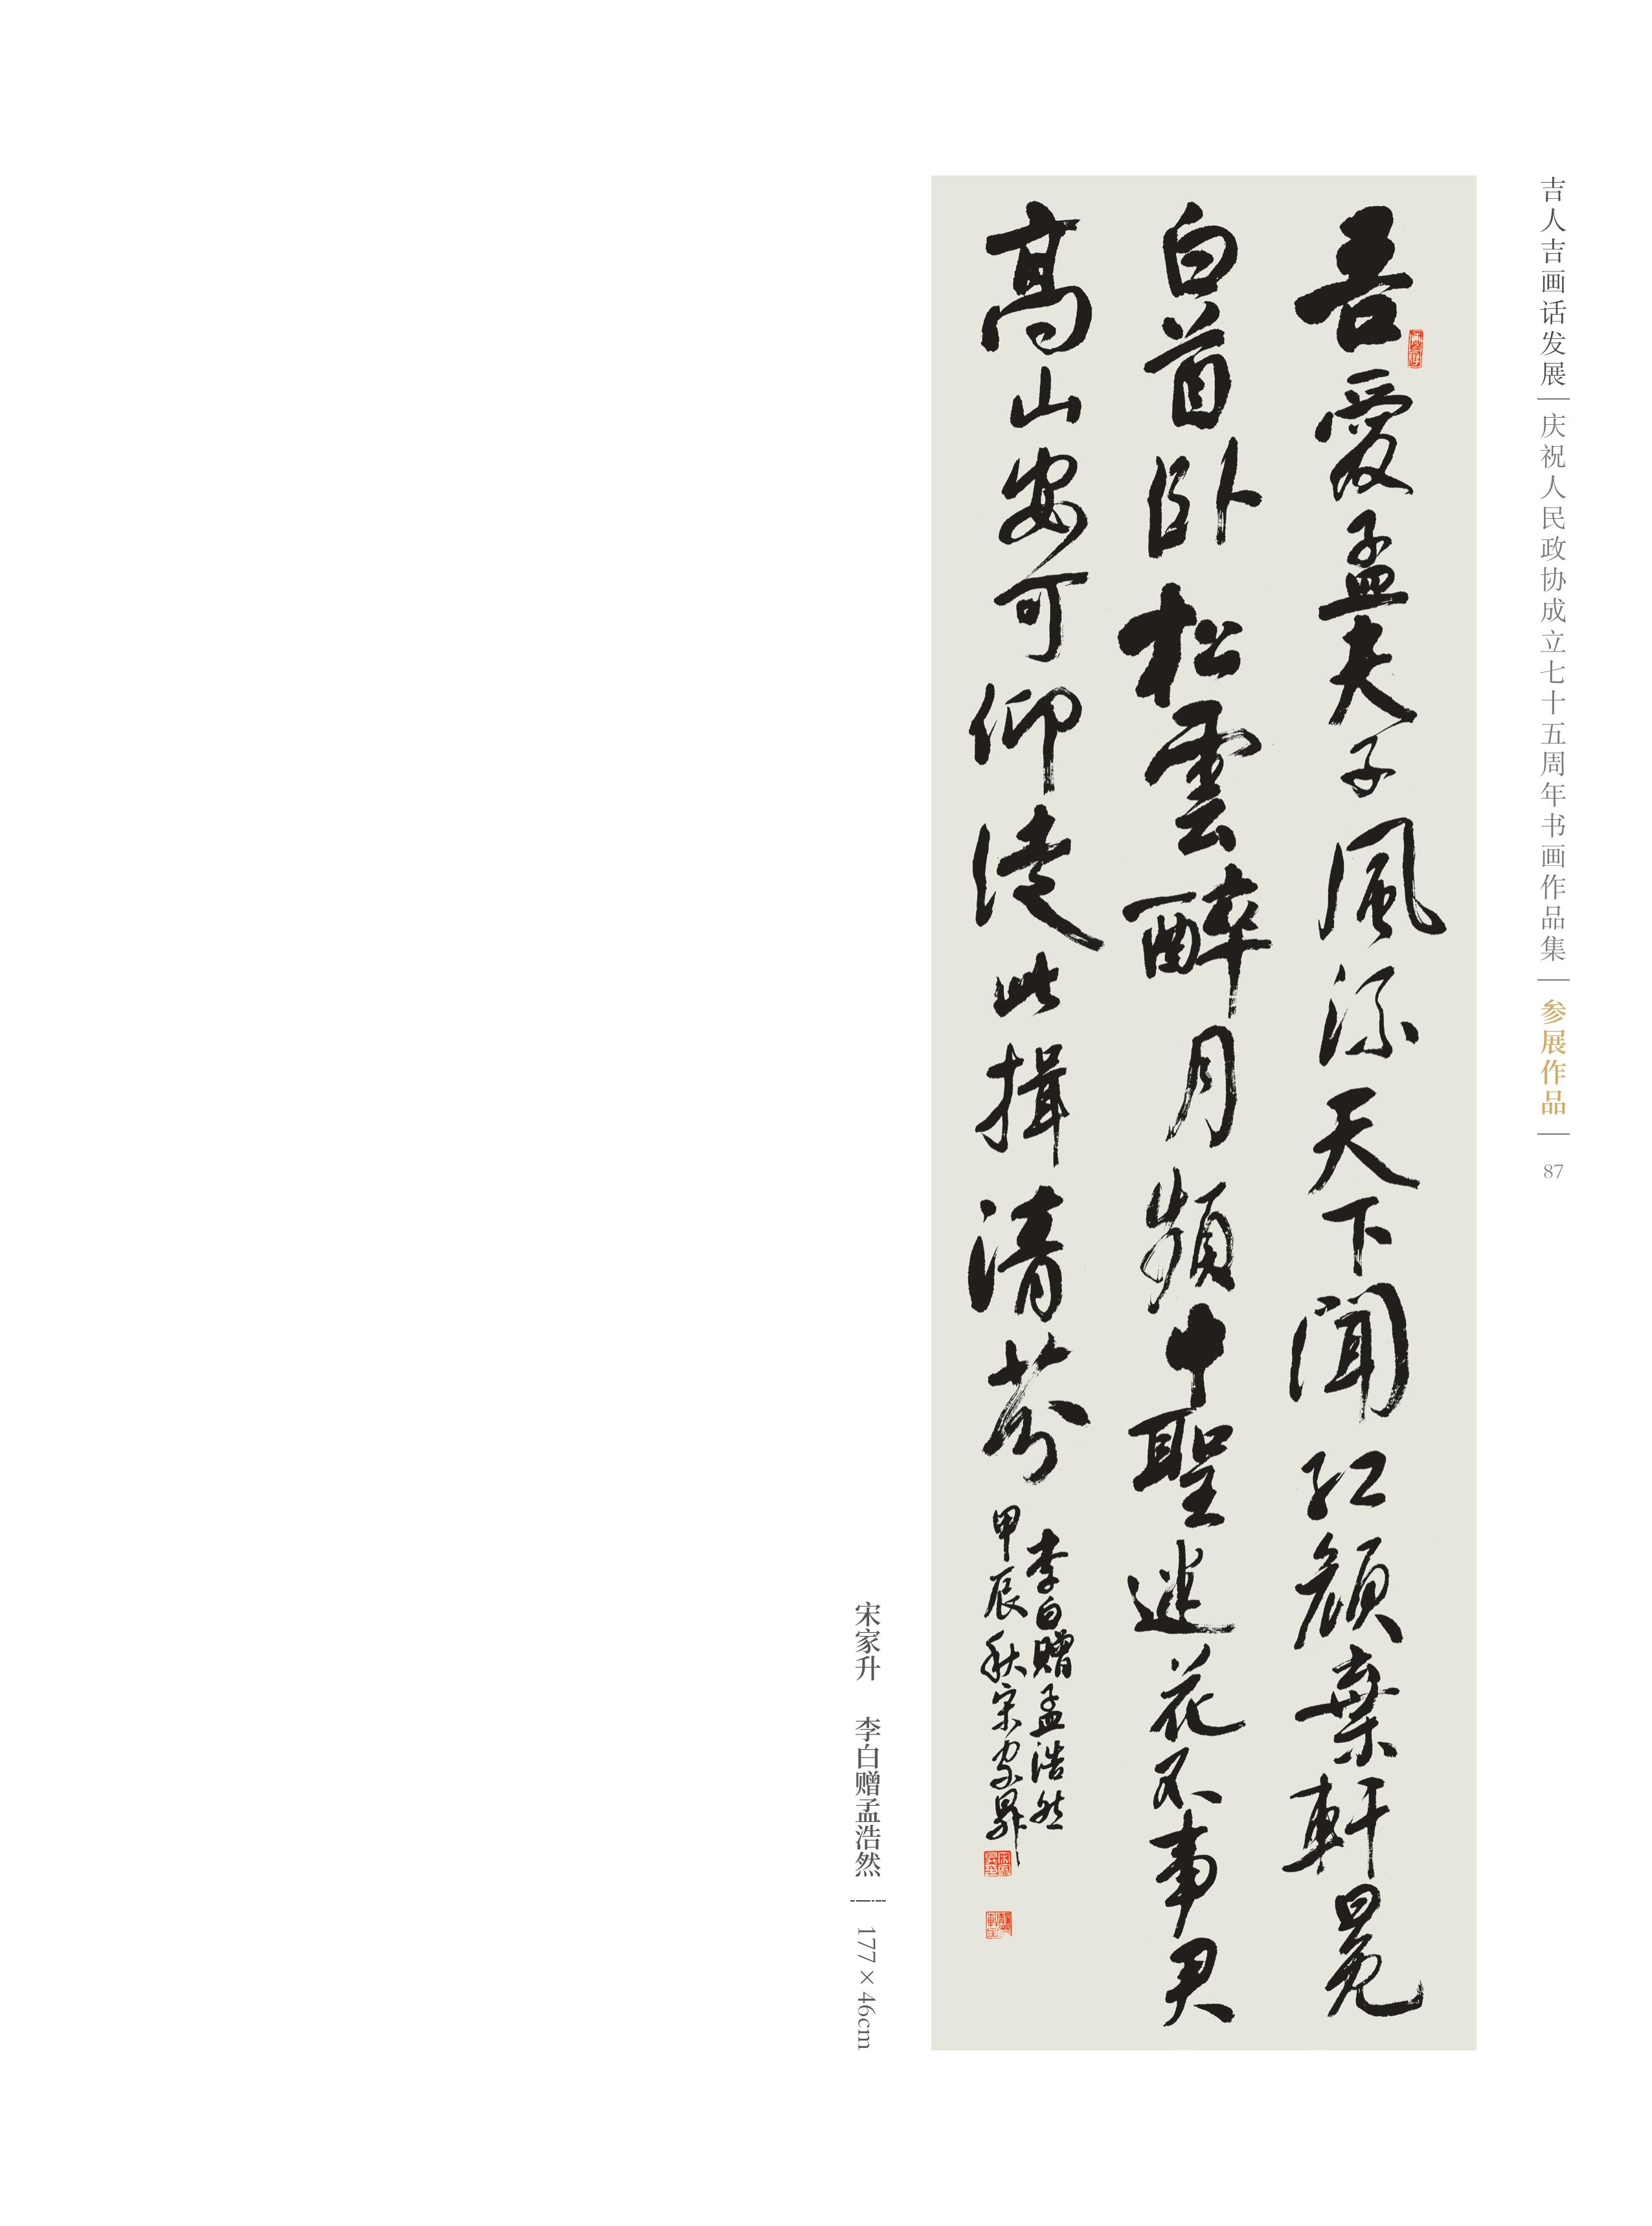 吉人吉画话发展
庆祝人民政协成立七十五周年书画作品集
参展作品
87
吾爱孟夫子風流天下聞紅顔棄軒冕
白首卧松雲醉月頻中聖迷花不事君
高山安可仰徒此揖清芬
李白赠孟浩然
甲辰秋宋家昇
宋家升 李白赠孟浩然
177×46cm